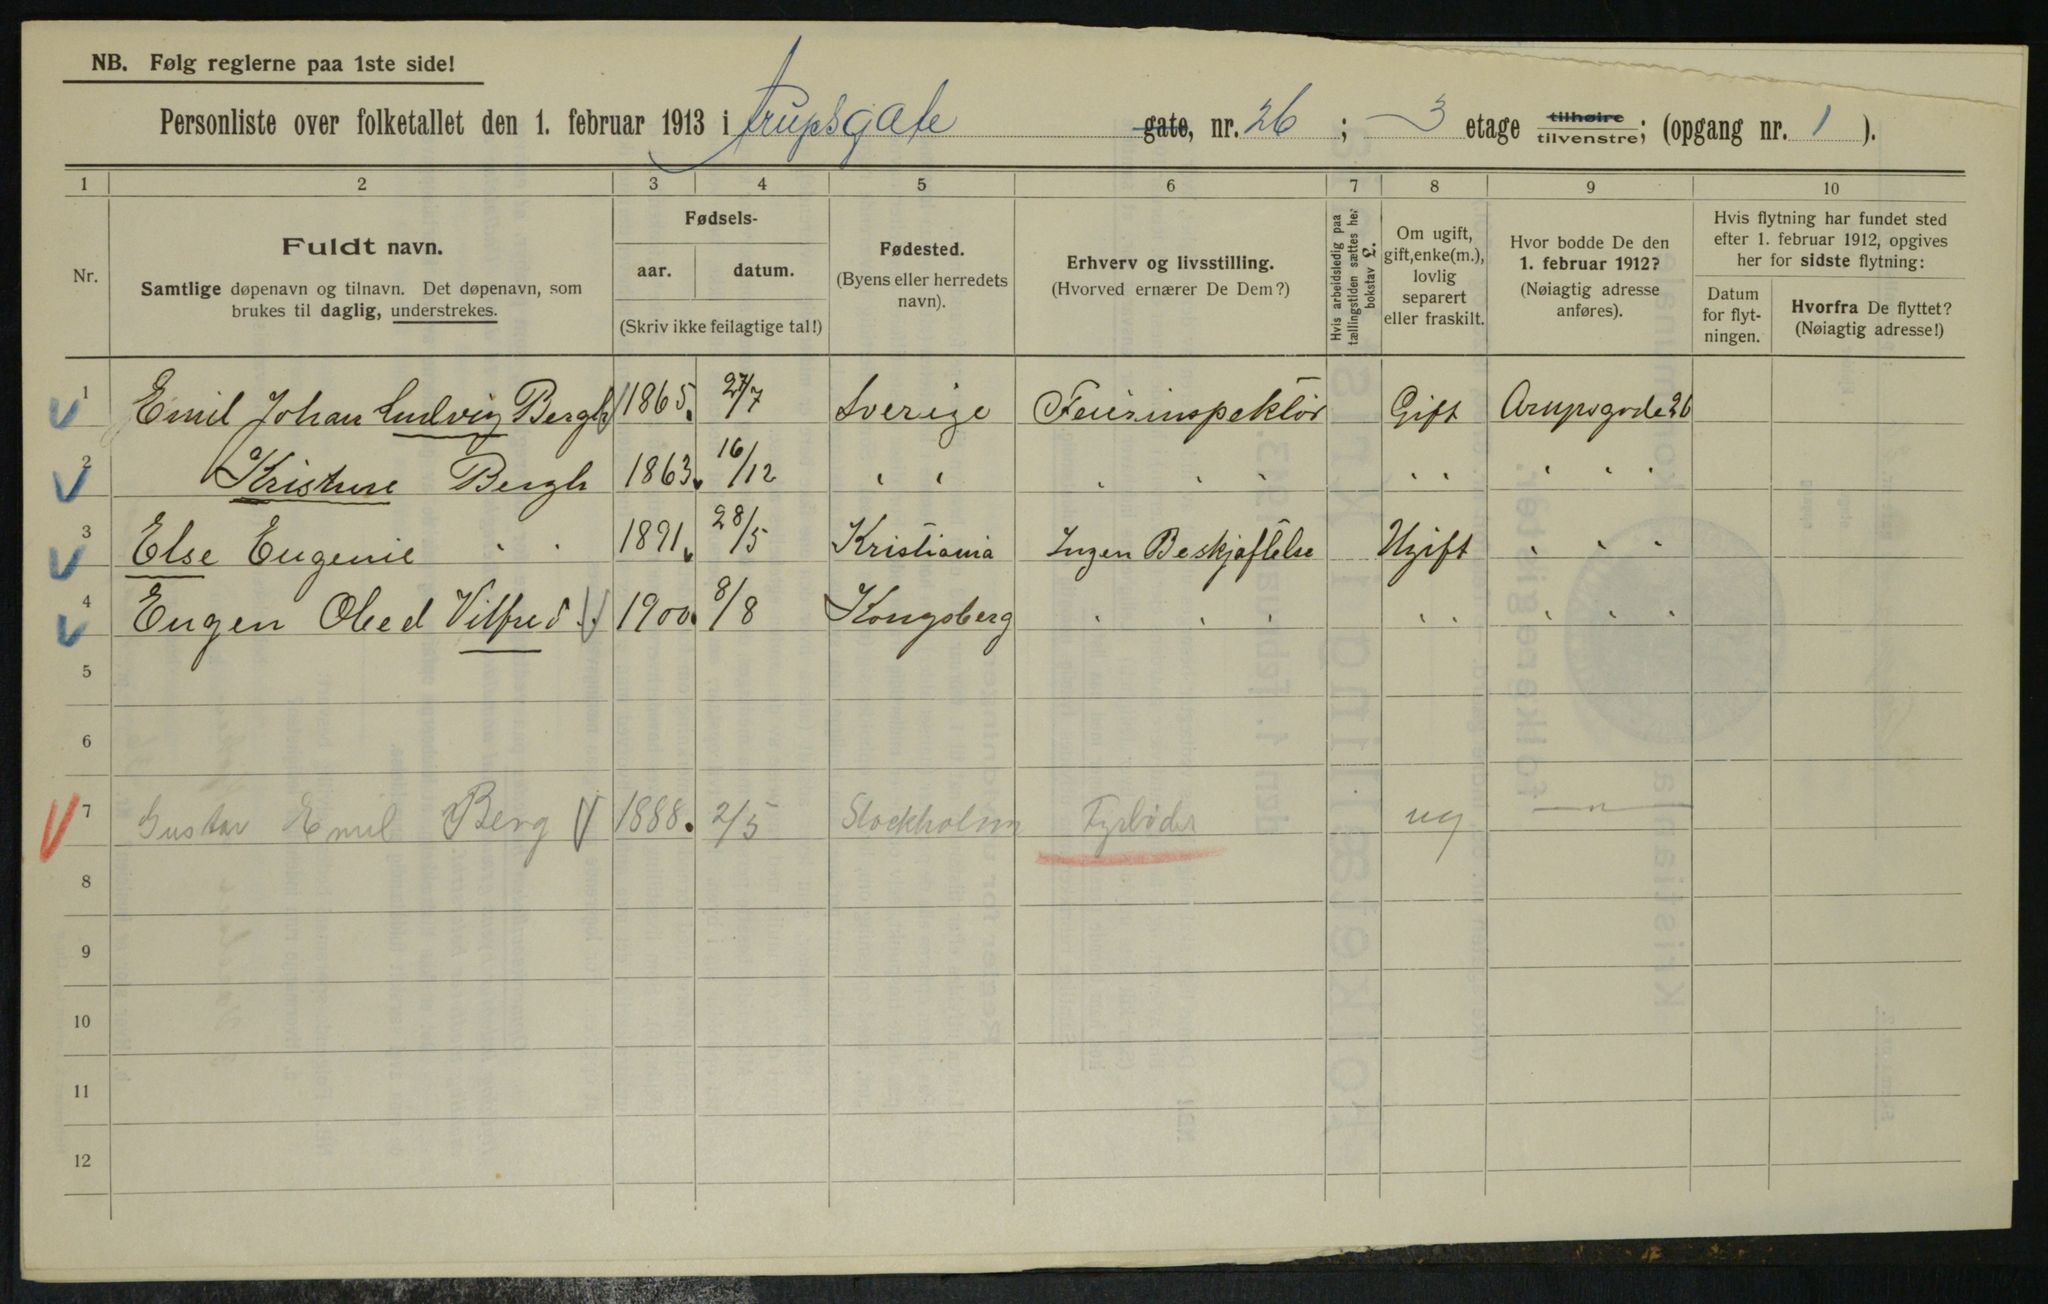 NB. Følg reglerne paa 1ste side!
Personliste over folketallet den 1. februar 1913 i Arupsgate gate, nr. 26 ; 3 etage tilhøire tilvenstre; (opgang nr. 1 ).
1 2 3 4 5 6 7 8 9 10
Nr.
Fuldt navn.
Samtlige døpenavn og tilnavn. Det døpenavn, som
brukes til daglig, understrekes.
Fødsels-
aar. datum.
(Skriv ikke feilagtige tal!)
Fødested.
(Byens eller herredets
navn).
Erhverv og livsstilling.
(Hvorved ernærer De Dem?)
Hvis arbeidsledig paa
tællingstiden sættes her
bokstav L.
Om ugift,
gift, enke(m.),
lovlig
separert
eller fraskilt.
Hvor bodde De den
1. februar 1912?
(Nøiagtig adresse
anføres).
Hvis flytning har fundet sted
efter 1. februar 1912, opgives
her for sidste flytning:
Datum
for flyt-
ningen.
Hvorfra De flyttet?
(Nøiagtig adresse!)
1 Emil Johan Ludvig Bergh 1865 27/7 Sverige Feierinspektør Gift Arupsgade 26
2 Kristine Bergh 1863 16/12 " " " " " " " " " "
3 Else Eugenie " " 1891 28/5 Kristiania Ingen Beskjæftelse Ugift " " "
4 Eugen Obed Vilfred " 1900 8/8 Kongsberg " " " " " " " "
5
6
7 Gustav Emil Berg 1888 2/5 Stockholm Fyrbøder ug — " —
8
9
10
11
12